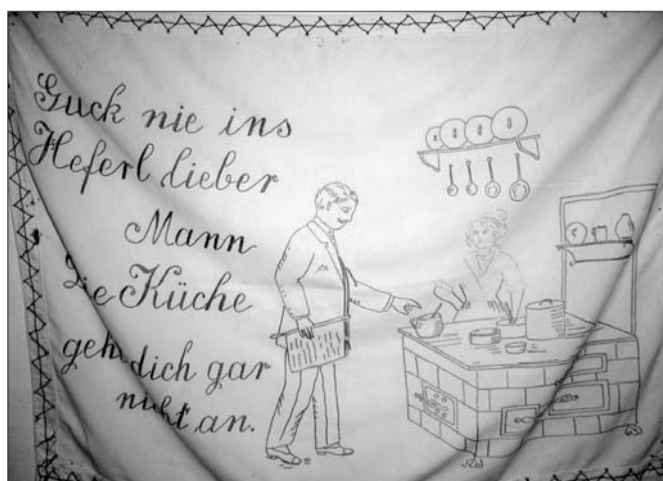 Guck nie ins
Heferl lieber
Mann
Die Küche
geht dich gar
nicht an.